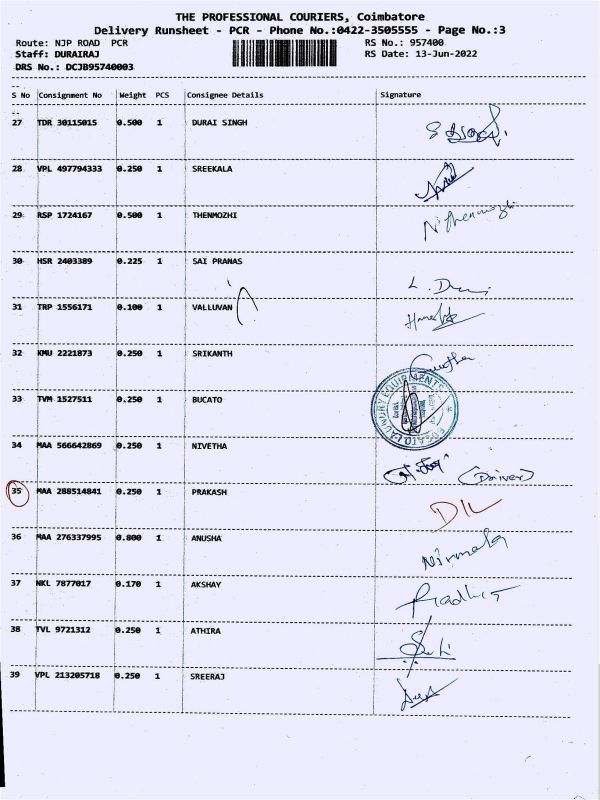 THE PROFESSIONAL COURIERS, Coimbatore
Delivery Runsheet - PCR - Phone No.:0422-3505555 - Page No.:3
Route: NJP ROAD PCR RS No.: 957400
Staff: DURAIRAJ RS Date: 13-Jun-2022
DRS No.: DCJB95740003
S No Consignment No Weight PCS Consignee Details Signature
27 TDR 30115015 0.500 1 DURAI SINGH
28 VPL 497794333 0.250 1 SREEKALA
29 RSP 1724167 0.500 1 THENMOZHI N.Thenmozhi
30 HSR 2403389 0.225 1 SAI PRANAS
31 TRP 1556171 0.100 1 VALLUVAN
32 KMU 2221873 0.250 1 SRIKANTH
33 TVM 1527511 0.250 1 BUCATO
34 MAA 566642869 0.250 1 NIVETHA (Driver)
35 MAA 288514841 0.250 1 PRAKASH D/L
36 MAA 276337995 0.800 1 ANUSHA Nirmala
37 NKL 7877017 0.170 1 AKSHAY
38 TVL 9721312 0.250 1 ATHIRA
39 VPL 213205718 0.250 1 SREERAJ